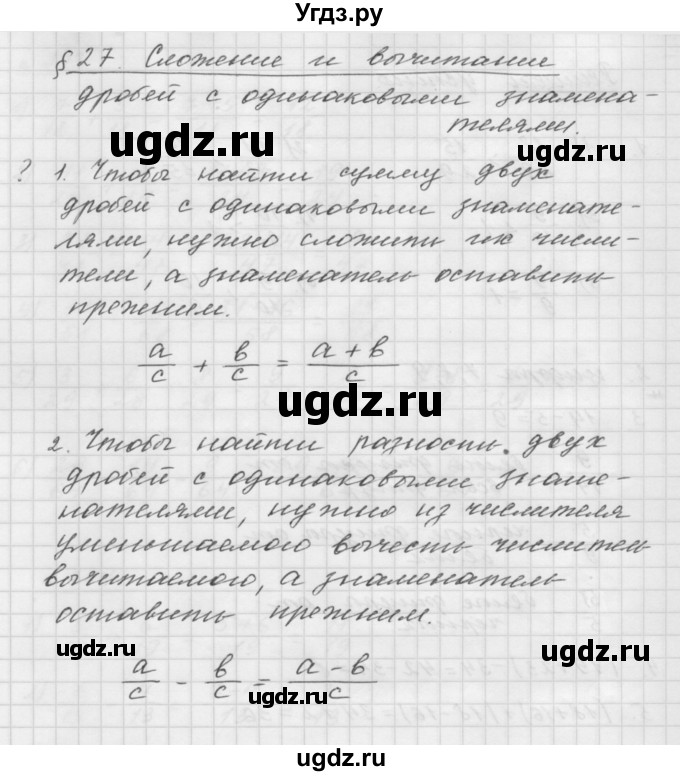 Угдз.ру
§ 27. Сложение и вычитание
дробей с одинаковыми знамена-
телями.
ugdz.ru
ugdz.ru
? 1. Чтобы найти сумму двух
дробей с одинаковыми знаменате-
лями, нужно сложить их числи-
тели, а знаменатель оставить
прежним.
a/c + b/c = (a + b)/c
ugdz.ru
2. Чтобы найти разность двух
дробей с одинаковыми знаме-
нателями, нужно из числителя
уменьшаемого вычесть числитель
вычитаемого, а знаменатель
оставить прежним.
ugdz.ru
ugdz.ru
a/c - b/c = (a - b)/c
ugdz.ru
ugdz.ru